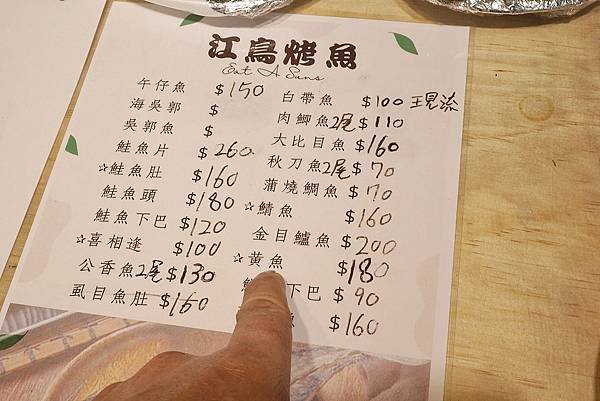 江鳥烤魚
Eat A Suns
午仔魚 $150
海吳郭 $
吳郭魚 $
鮭魚片 $260
☆鮭魚肚 $160
鮭魚頭 $180
鮭魚下巴 $120
☆喜相逢 $100
公香魚2尾 $130
虱目魚肚 $160
白帶魚 $100
肉鯽魚2尾 $110
大比目魚 $160
秋刀魚2尾 $70
蒲燒鯛魚 $70
☆鯖魚 $160
金目鱸魚 $200
☆黃魚 $180
下巴 $90
$160